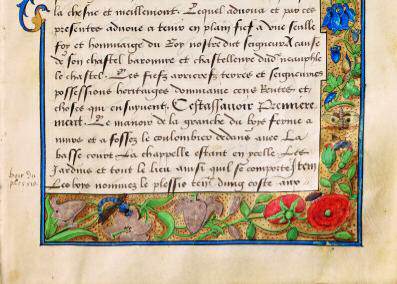 la chesne et meillemont. Lequel advoua et par ces
presentes advoue a tenir en plain fief a une seulle
foy et hommaige du Roy nostre dit seigneur a cause
de son chastel baronnie et chastellenie dud neauphle
le chastel. Les fiefz terres et seigneuries
possessions heritaiges dommaine cens Rentes et
choses qui ensuyvent. Cest assavoir Premiere
ment. Le manoir de la granche du boys ferme a
murs et a fossez le coulombier dedans avec La
basse court La chappelle estant en ycelle Les
Jardins et tout le lieu ainsi quil se comporte Item
Les boys nommez le plessie dung coste aux
boys du
plessie